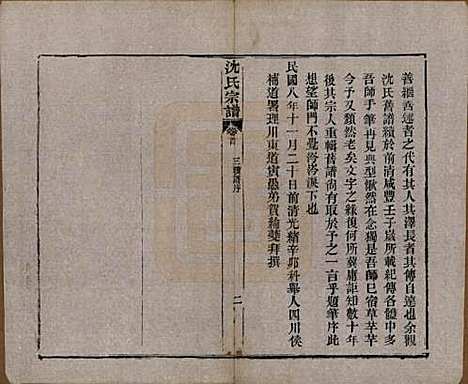 善繼善述者之代有其人其澤長者其傳自遠也余觀
沈氏舊譜續於前清咸豐壬子嵗所載紀傳各體中多
吾師手筆再見典型愀然在念獨是吾師已宿草芊芊
今予又頹然老矣文字之緣復何所冀庸詎知數十年
後其宗人重輯舊譜尚有取於予之一言乎題筆序此
想望師門不覺涔涔淚下也
民國八年十一月二十日前清光緒辛卯科舉人四川候
補道署理川東道寅愚弟賀綸夔拜撰
沈氏宗譜 卷首 三續譜序 二